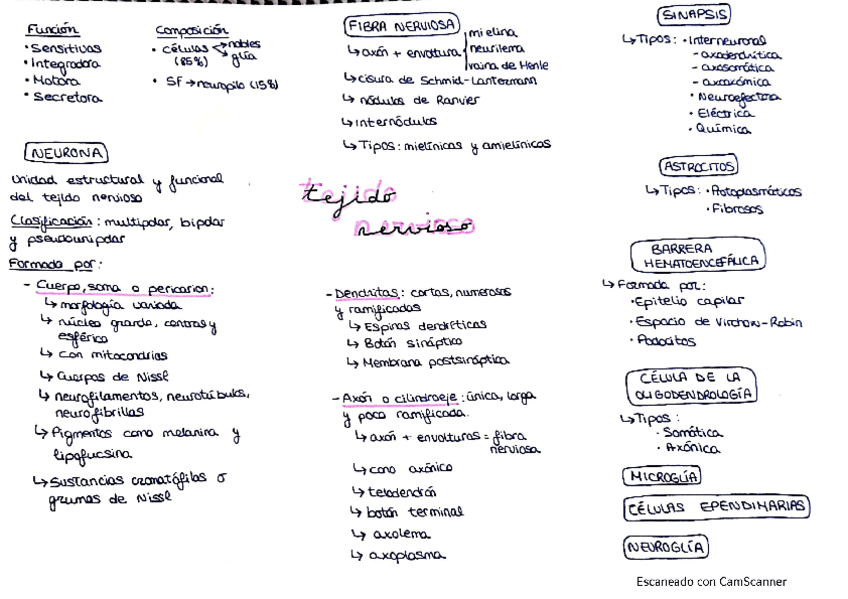 Función
• Sensitivas
• Integradora
• Motora
• Secretora
Composición
• células nobles
(85%) glía
• SF → neuropilo (15%)
NEURONA
Unidad estructural y funcional
del tejido nervioso
Clasificación: multipolar, bipolar
y pseudounipolar
Formada por:
- Cuerpo, soma o pericarion:
↳ morfología variada
↳ núcleo grande, central y
esférico
↳ con mitocondrias
↳ Cuerpos de Nissl
↳ neurofilamentos, neurotúbulos,
neurofibrillas
↳ Pigmentos como melanina y
lipofucsina
↳ Sustancias cromatófilas o
grumos de Nissl
FIBRA NERVIOSA
↳ axón + envoltura mielina
neurilema
vaina de Henle
↳ cisura de Schmid-Lantermann
↳ nódulos de Ranvier
↳ Internódulos
↳ Tipos: mielínicas y amielínicas
tejido
nervioso
- Dendritas: cortas, numerosas
y ramificadas
↳ Espinas dendríticas
↳ Botón sináptico
↳ Membrana postsináptica
- Axón o cilindroeje: única, larga
y poco ramificada.
↳ axón + envolturas = fibra
nerviosa
↳ cono axónico
↳ telodendrón
↳ botón terminal
↳ axolema
↳ axoplasma
SINAPSIS
↳ Tipos: • Interneuronal
- axodendrítica
- axosomática
- axoaxómica
• Neuroefectora
• Eléctrica
• Química
ASTROCITOS
↳ Tipos: • Protoplasmáticos
• Fibrosos
BARRERA
HEMATOENCEFÁLICA
↳ Formada por:
• Epitelio capilar
• Espacio de Virchow-Robin
• Podocitos
CÉLULA DE LA
OLIGODENDROLOGÍA
↳ Tipos:
• Somática
• Axónica
MICROGLÍA
CÉLULAS EPENDIMARIAS
NEUROGLÍA
Escaneado con CamScanner